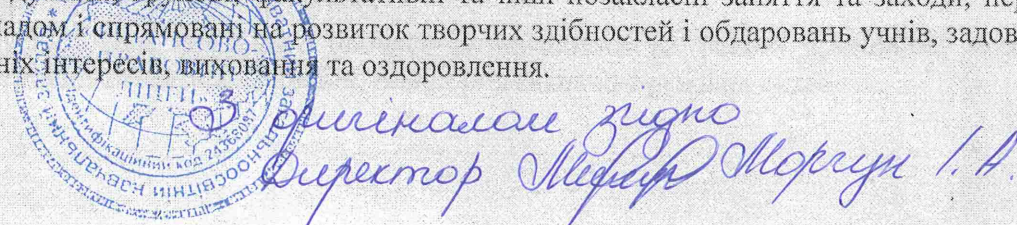 факультативні та інші позакласні заняття та заходи, пер
адом і спрямовані на розвиток творчих здібностей і обдаровань учнів, задов
ніх інтересів, виховання та оздоровлення.
З оригіналом згідно
Директор Моргун І. А.
ФІНАНСОВО-
ЛІЦЕЙ
ідентифікаційний код